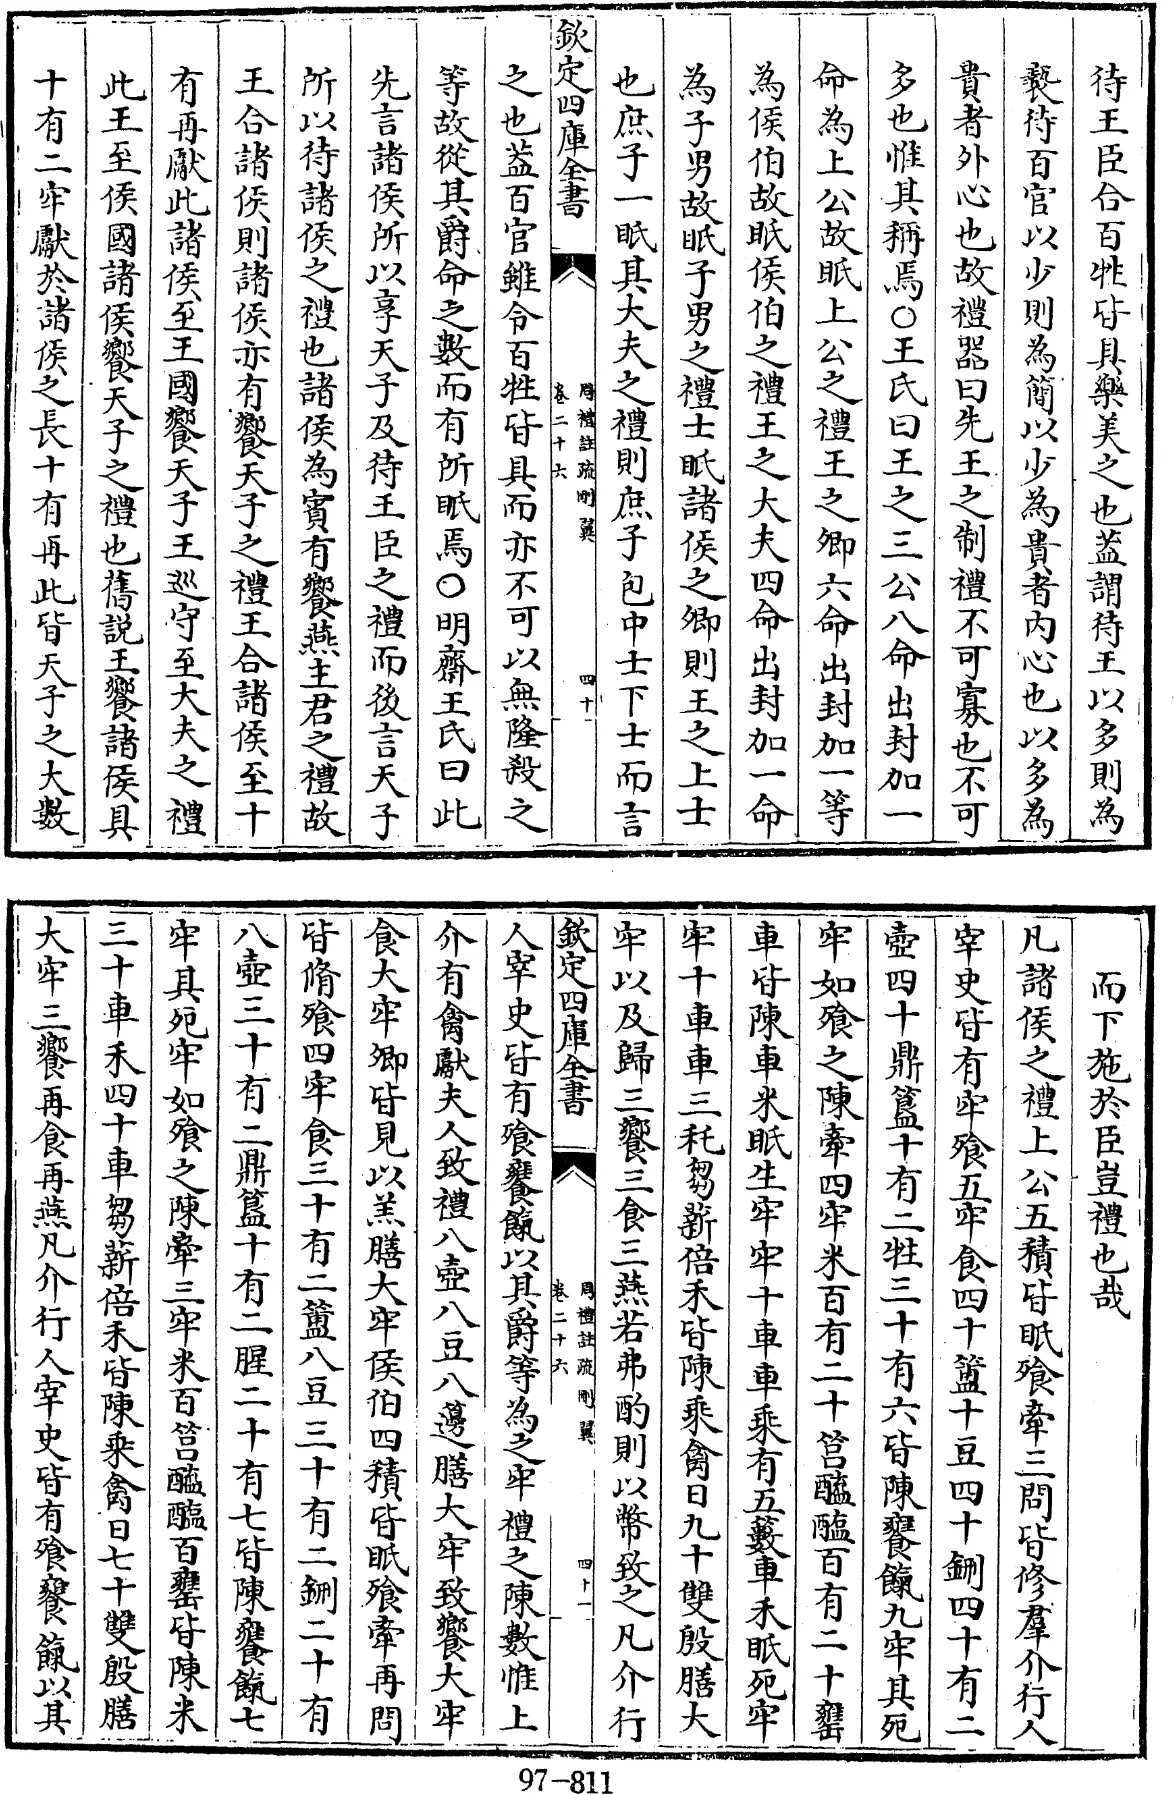 待王臣合百牲皆具樂美之也葢謂待王以多則為
褻待百官以少則為簡以少為貴者内心也以多為
貴者外心也故禮器曰先王之制禮不可寡也不可
多也惟其稱焉○王氏曰王之三公八命出封加一
命為上公故眂上公之禮王之卿六命出封加一等
為侯伯故眂侯伯之禮王之大夫四命出封加一命
為子男故眂子男之禮士眂諸侯之卿則王之上士
也庶子一眂其大夫之禮則庶子包中士下士而言
欽定四庫全書
周禮註疏刪翼
卷二十六
四十
之也葢百官雖令百牲皆具而亦不可以無隆殺之
等故從其爵命之數而有所眂焉○明齋王氏曰此
先言諸侯所以享天子及待王臣之禮而後言天子
所以待諸侯之禮也諸侯為賓有饗燕主君之禮故
王合諸侯則諸侯亦有饗天子之禮王合諸侯至十
有再獻此諸侯至王國饗天子王巡守至大夫之禮
此王至侯國諸侯饗天子之禮也舊説王饗諸侯具
十有二牢獻於諸侯之長十有再此皆天子之大數
而下施於臣豈禮也哉
凡諸侯之禮上公五積皆眂飱牽三問皆修羣介行人
宰史皆有牢飱五牢食四十簠十豆四十鉶四十有二
壺四十鼎簋十有二牲三十有六皆陳饔餼九牢其死
牢如飱之陳牽四牢米百有二十筥醯醢百有二十罋
車皆陳車米眂生牢牢十車車乘有五籔車禾眂死牢
牢十車車三秅芻薪倍禾皆陳乘禽日九十雙殷膳大
牢以及歸三饗三食三燕若弗酌則以幣致之凡介行
欽定四庫全書
周禮註疏刪翼
卷二十六
四十一
人宰史皆有飱饔餼以其爵等為之牢禮之陳數惟上
介有禽獻夫人致禮八壺八豆八籩膳大牢致饗大牢
食大牢卿皆見以羔膳大牢侯伯四積皆眂飱牽再問
皆脩飱四牢食三十有二簠八豆三十有二鉶二十有
八壺三十有二鼎簋十有二腥二十有七皆陳饔餼七
牢其死牢如飱之陳牽三牢米百筥醯醢百罋皆陳米
三十車禾四十車芻薪倍禾皆陳乘禽日七十雙殷膳
大牢三饗再食再燕凡介行人宰史皆有飱饔餼以其
97-811